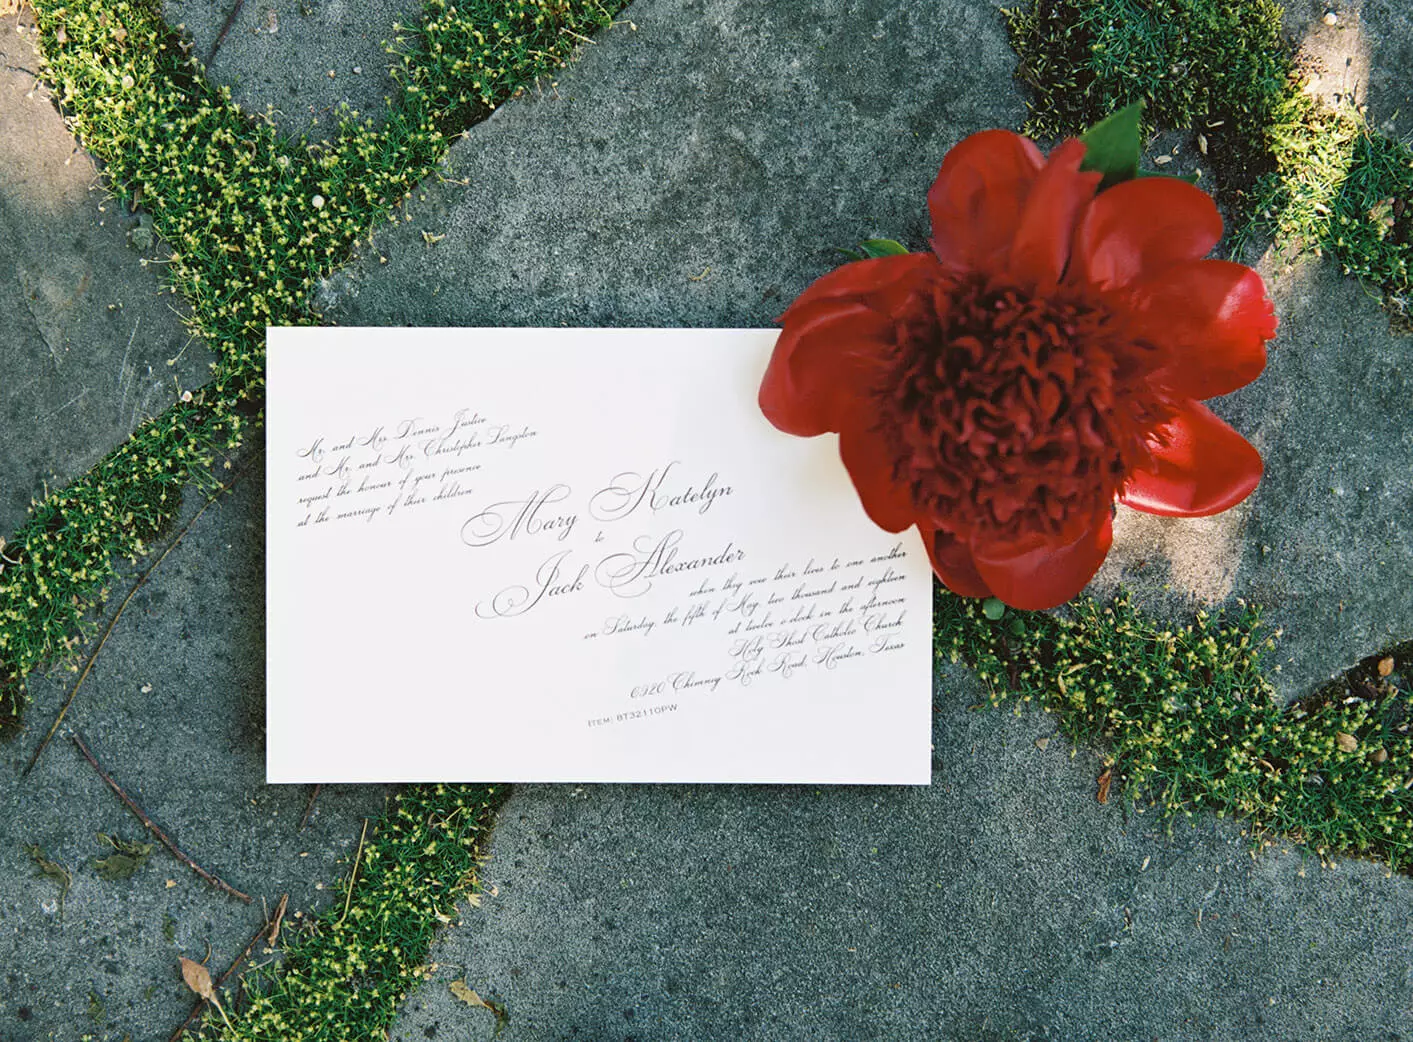 Mr. and Mrs. Dennis Justice
and Mr. and Mrs. Christopher Langston
request the honour of your presence
at the marriage of their children
Mary Katelyn
to
Jack Alexander
when they vow their lives to one another
on Saturday, the fifth of May, two thousand and eighteen
at twelve o'clock in the afternoon
Holy Ghost Catholic Church
6920 Chimney Rock Road, Houston, Texas
ITEM: BT32110PW